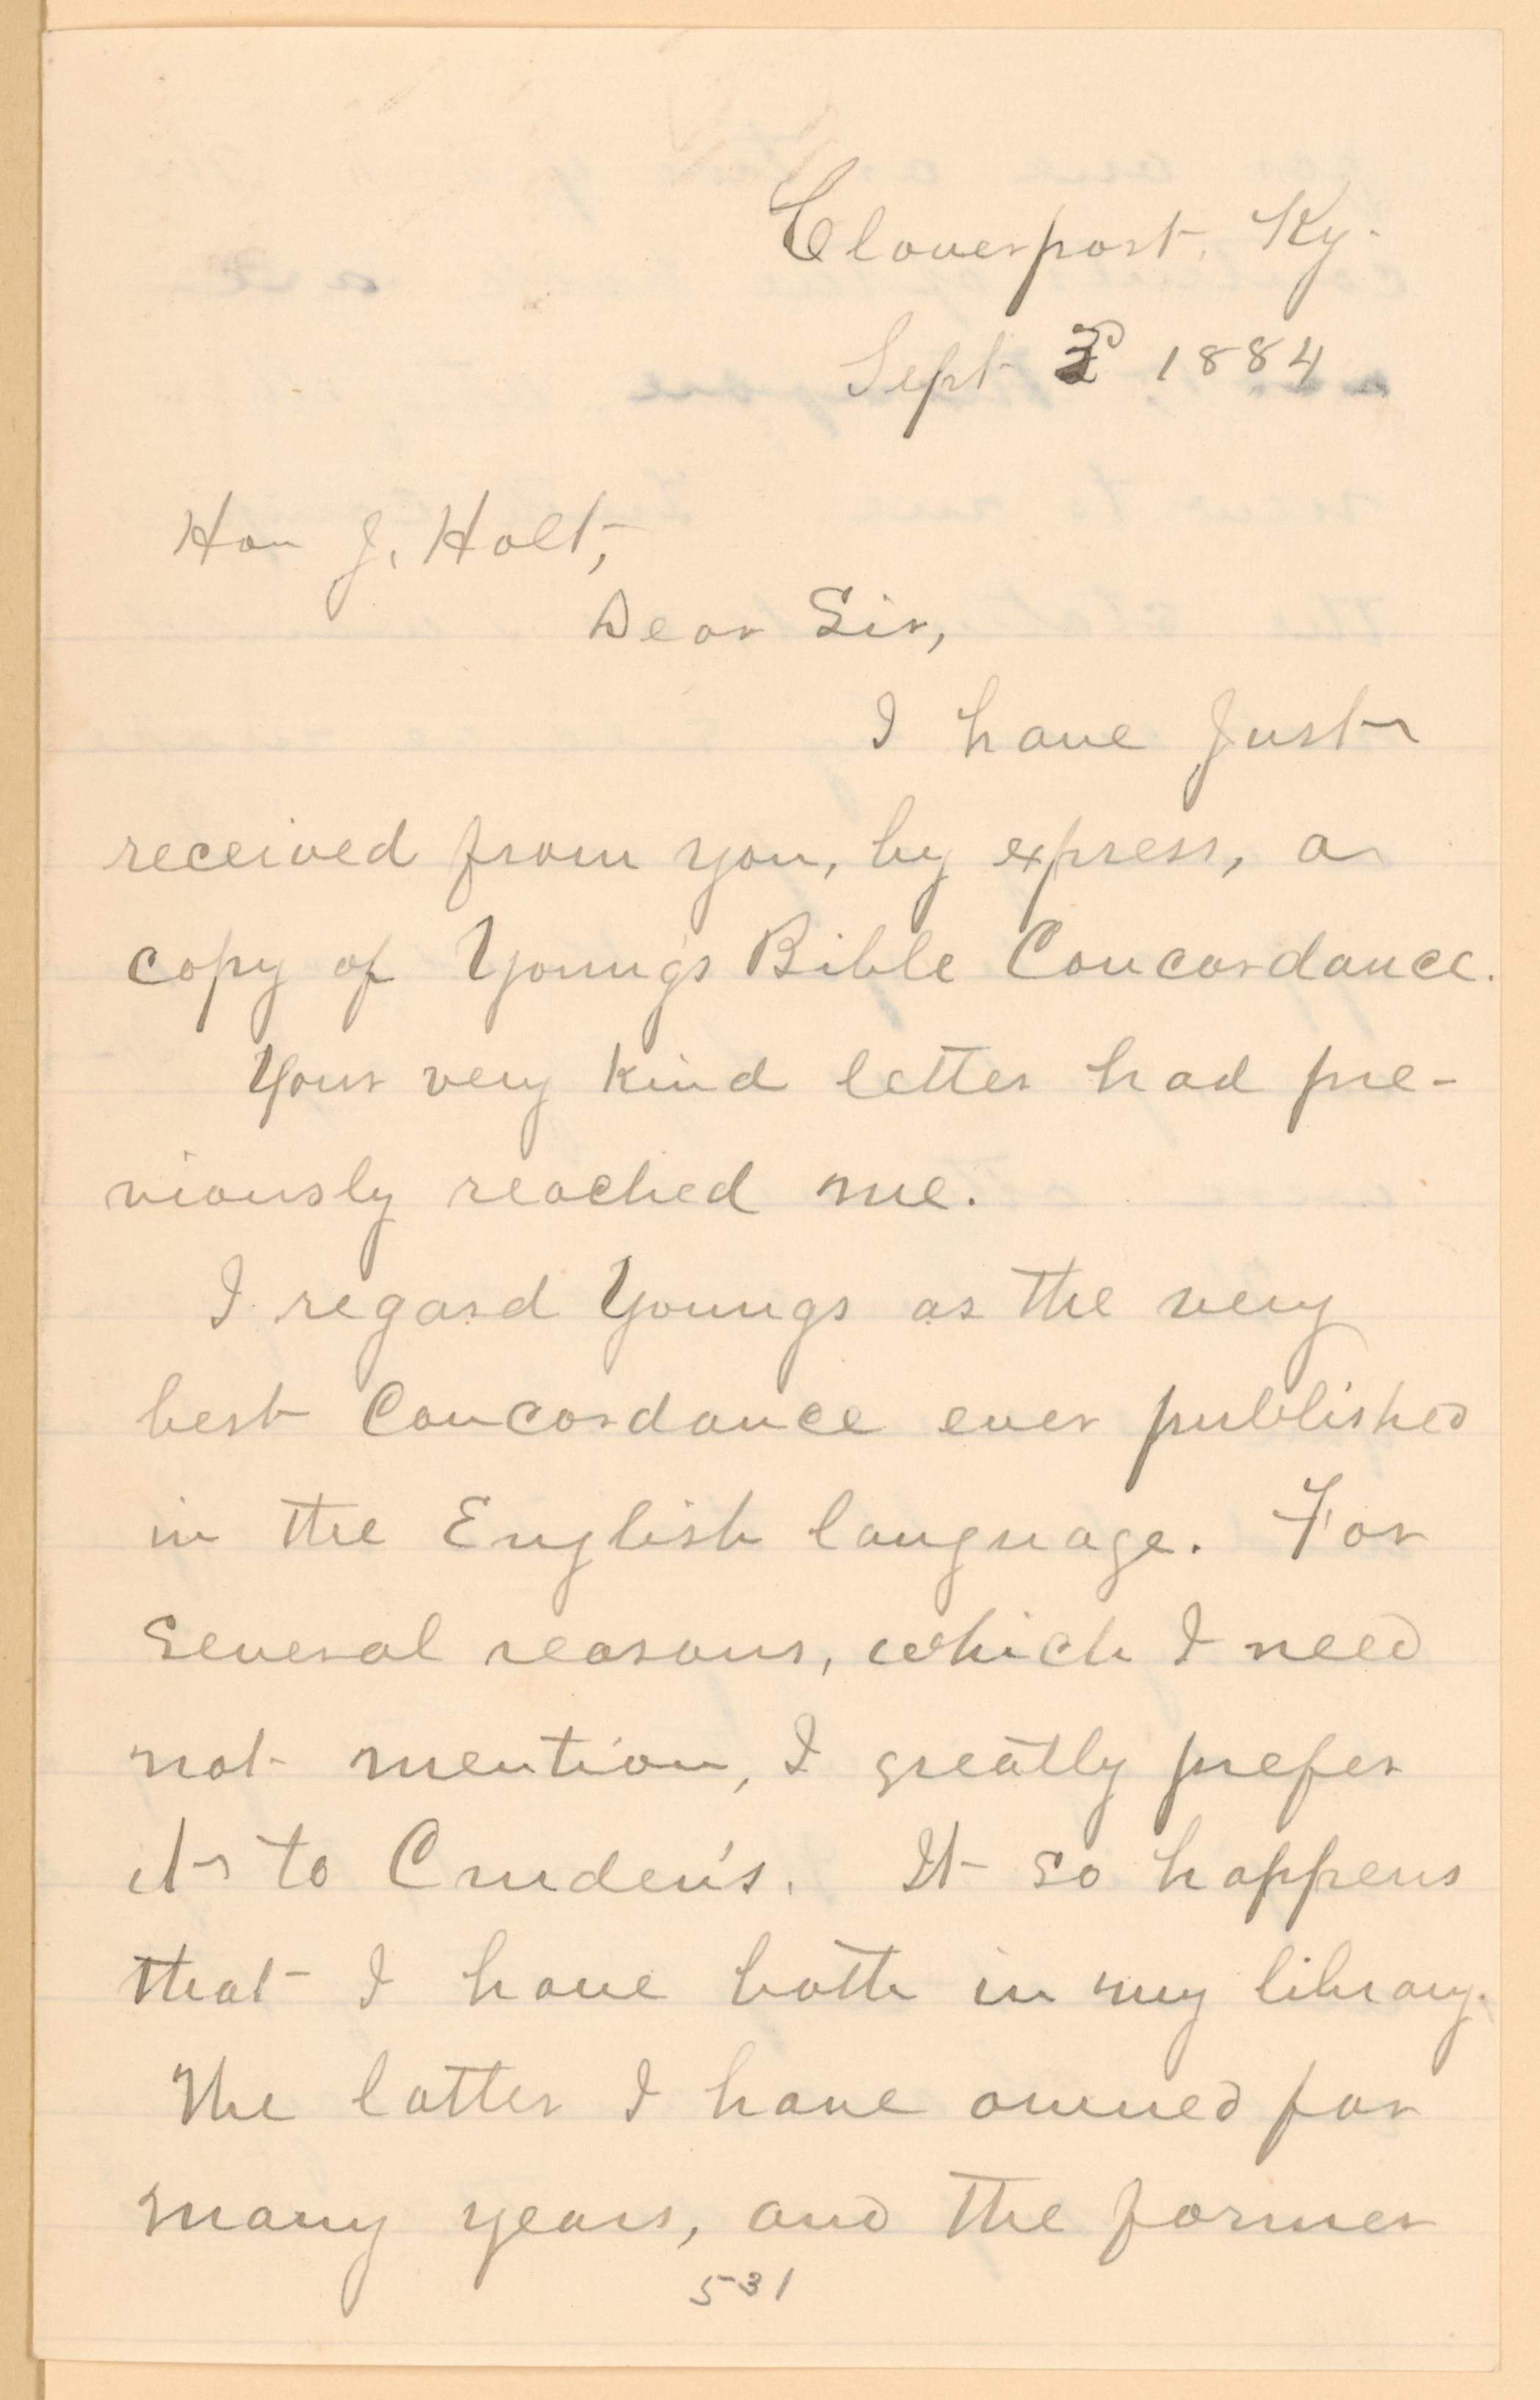 Cloverport, Ky.
Sept 1884
Hon J. Holt,
Dear Sir,
I have just
received from you, by express, a
copy of Young's Bible Concordance.
Your very kind letter had pre-
viously reached me.
I regard Youngs as the very
best Concordance ever published
in the English language. For
several reasons, which I need
not mention, I greatly prefer
it to Cruden's. It so happens
that I have both in my library.
The latter I have owned for
many years, and the former
531